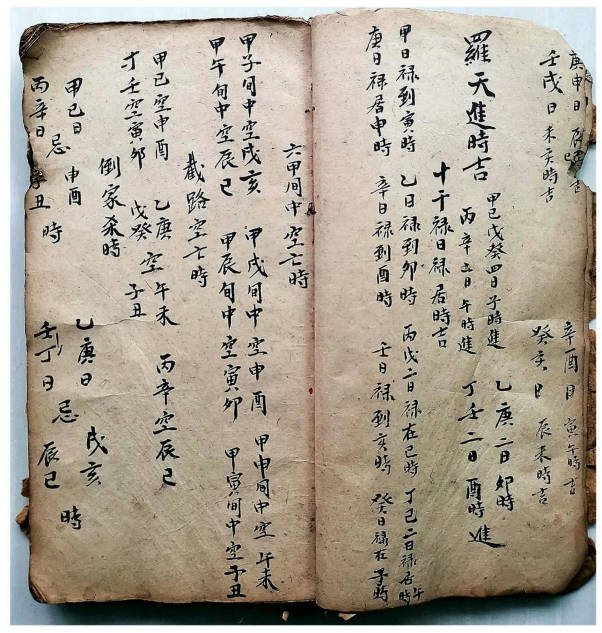 庚申日 辰巳時吉 辛酉日 寅午時吉
壬戌日 未亥時吉 癸亥日 辰未時吉
羅天進時吉 甲己戊癸四日子時進 乙庚二日卯時
丙辛二日午時進 丁壬二日酉時進
十干禄日禄居時吉
甲日禄到寅時 乙日禄到卯時 丙戊二日禄在巳時 丁己二日禄居午時
庚日禄居申時 辛日禄到酉時 壬日禄到亥時 癸日禄在子時
六甲旬中空亡時
甲子旬中空戌亥 甲戌旬中空申酉 甲申旬中空午未
甲午旬中空辰巳 甲辰旬中空寅卯 甲寅旬中空子丑
截路空亡時
甲己空申酉 乙庚空午未 丙辛空辰巳
丁壬空寅卯 戊癸子丑
倒家杀時
甲己日 申酉 乙庚日 戌亥
丙辛日忌 丑時 壬丁日忌辰巳時